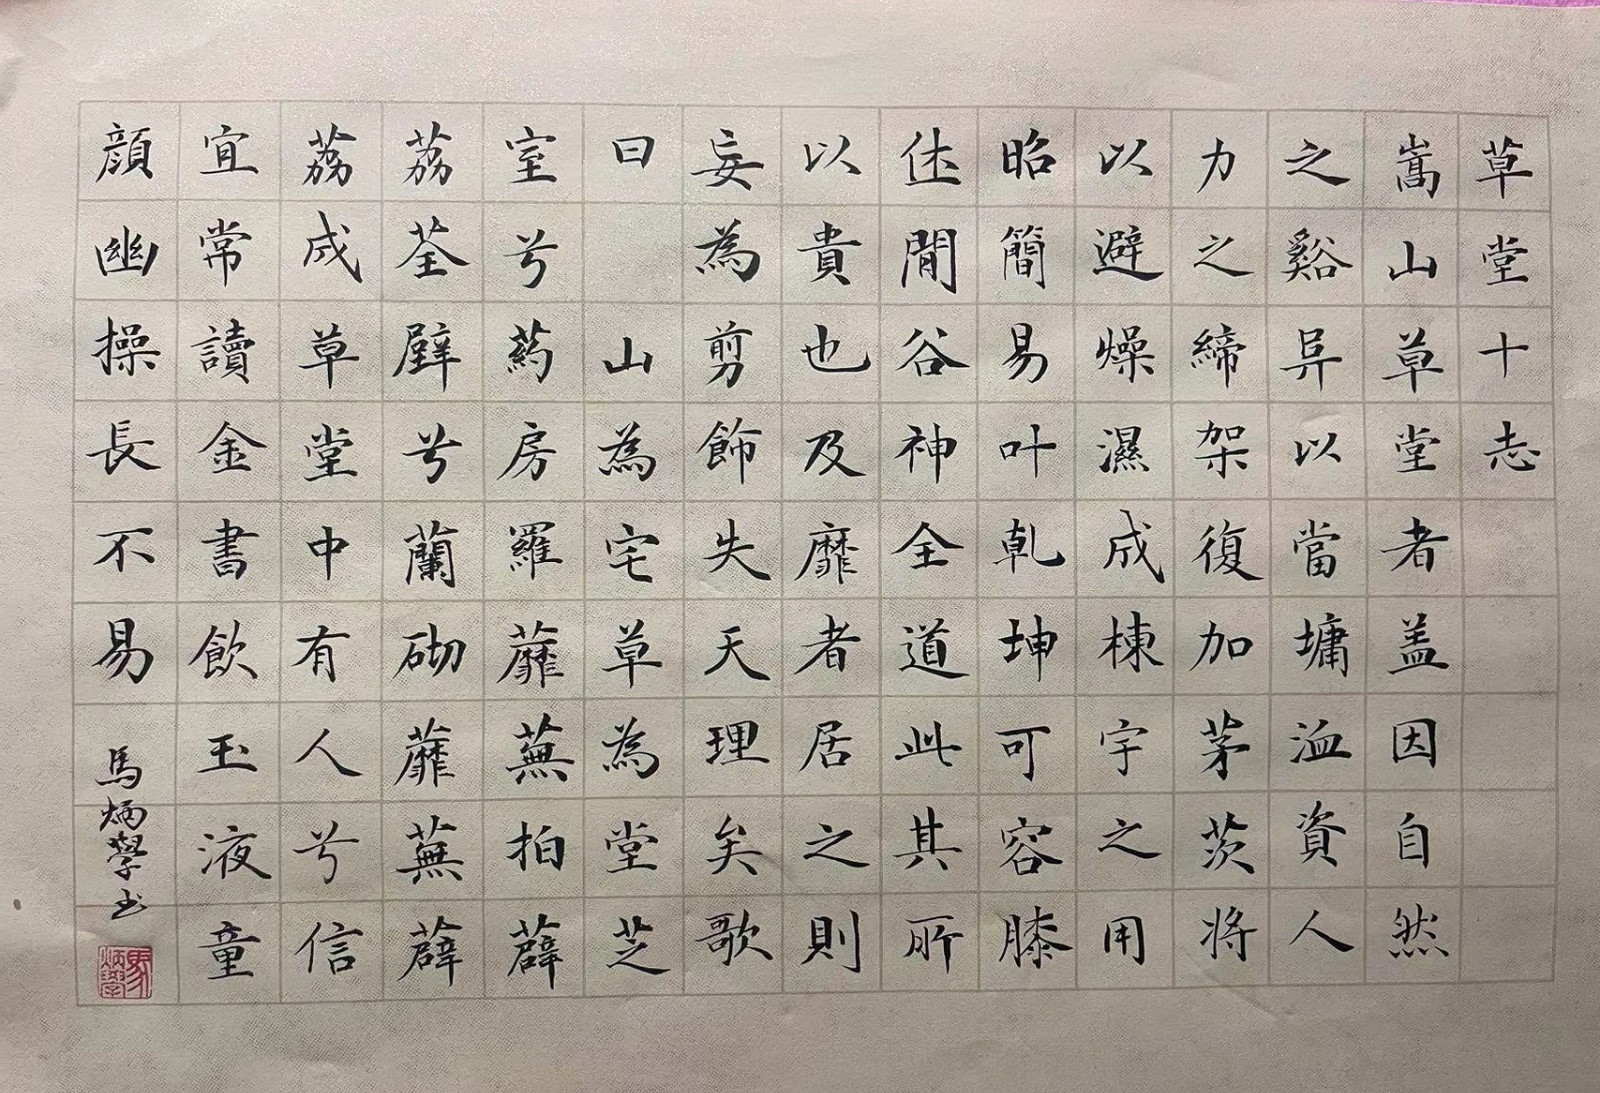 草堂十志
嵩山草堂者盖因自然
之谿异以當墉洫資人
力之締架復加茅茨將
以避燥濕成棟宇之用
昭簡易叶乾坤可容膝
休閒谷神全道此其所
以貴也及靡者居之則
妄為剪飾失天理矣歌
曰 山為宅草為堂芝
室兮葯房羅蘼蕪拍薜
荔荃壁兮蘭砌蘼蕪薜
荔成草堂中有人兮信
宜常讀金書飲玉液童
顏幽操長不易
馬炳學书
馬炳學